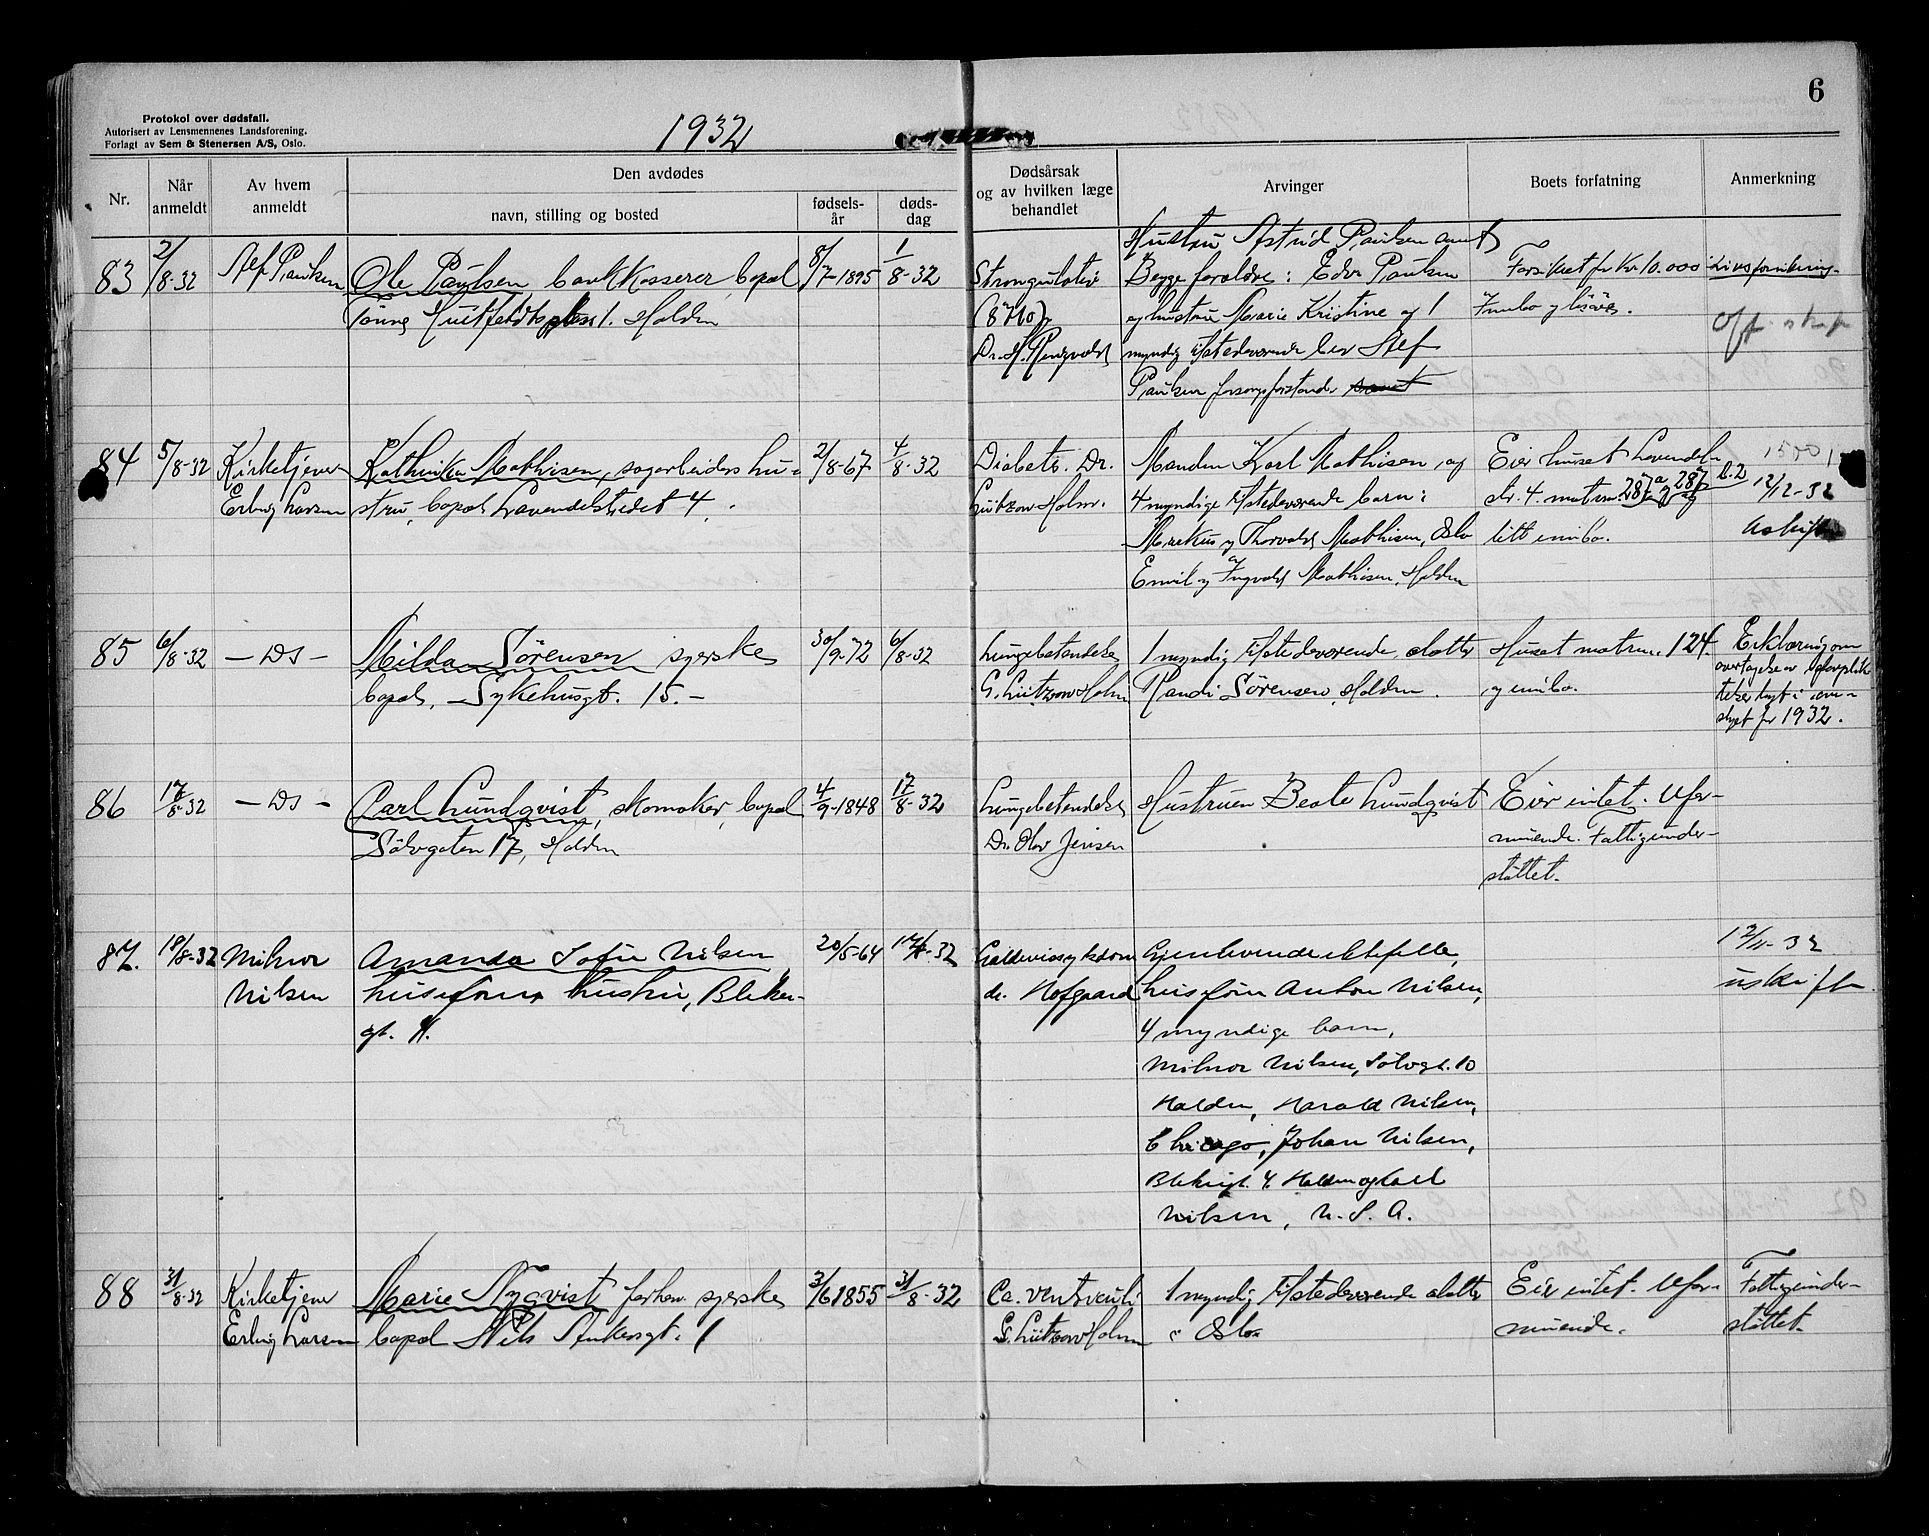 6
Protokol over dødsfall.
Autorisert av Lensmennenes Landsforening.
Forlagt av Sem & Stenersen A/S, Oslo.
1932
Nr.
Når anmeldt
Av hvem anmeldt
Den avdødes
navn, stilling og bosted
fødsels-år
døds-dag
Dødsårsak og av hvilken læge behandlet
Arvinger
Boets forfatning
Anmerkning
83
2/8-32
Alf Paulsen
Ole Paulsen bankkasserer, bopæl
Tønne Huitfeldts plass 1. Halden
8/7-1895
1/8-32
Strangulatio
Dr. H.
Hustru Astrid Paulsen samt
Begge foreldre: Edv. Paulsen
og hustru Marie Kristine og 1
myndig tilstedeværende bror Alf
Paulsen forsorgsforstander samt
Forsikret for Kr 10.000
Innbo og løsøre.
Livsforsikring
Off. skifte
84
5/8-32
Kirketjener
Erling Larsen
Kathinka Mathisen, sagarbeiders hu-
stru, bopæl Lavendelstredet 4.
2/8-67
4/8-32
Diabetes. Dr.
Lützow Holm.
Manden Karl Mathisen, og
4 myndige tilstedeværende barn:
Markus og Thorvald Mathisen, Oslo
Emil og Ingvald Mathisen, Halden
Eier huset Lavendel-
str. 4. matrnr. 287a og 287 b.2
litt innbo.
1500
12/12-32
Uskifte
85
6/8-32
— Ds —
Milda Sørensen syerske
bopæl, Sykehusgt. 15.-
30/9-72
6/8-32
Lungebetendelse
G. Lützow Holm
1 myndig tilstedeværende datter
Randi Sørensen, Halden.
Huset matrnr. 124
og innbo.
Erklæring om
overtagelse av
for 1932.
86
17/8-32
— Ds —
Carl Lundqvist, skomaker, bopæl
Sølvgaten 17, Halden
4/9-1848
17/8-32
Lungebetendelse
Dr. Olav Jensen
Hustruen Beate Lundqvist
Eier intet. Ufor-
muende. Fattigunder-
støttet.
87.
18/8-32
Milnor
Nilsen
Amanda Sofie Nilsen
husform. hustru, Bleker-
gt. 4.
20/5-64
17/8-32
Galdeveissykdom
dr. Hofgaard
Gjenlevende ektefelle,
husform Anton Nilsen,
4 myndige barn,
Milnor Nilsen, Sølvgt. 10
Halden, Harald Nilsen,
Chicago, Johan Nilsen,
Blekergt. 4 Halden og Karl
Nilsen, U.S.A.
12/11-32
uskifte
88
31/8-32
Kirketjener
Erling Larsen
Marie Nyqvist forhenv. syerske
bopæl Nils Ankersgt. 1
3/6 1855
31/8-32
Ca. ventriculi
G. Lützow Holm
1 myndig tilstedeværende datter
i Oslo
Eier intet. Ufor-
muende.
Fattigunder-
støttet.